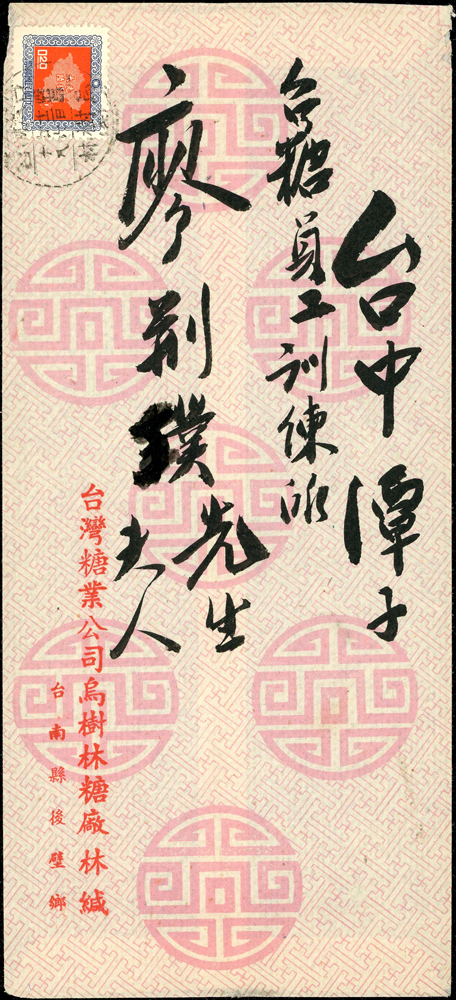 台中潭子
台糖員工訓練所
廖荊璞先生
夫人
台灣糖業公司烏樹林糖廠林緘
台南縣後壁鄉
020